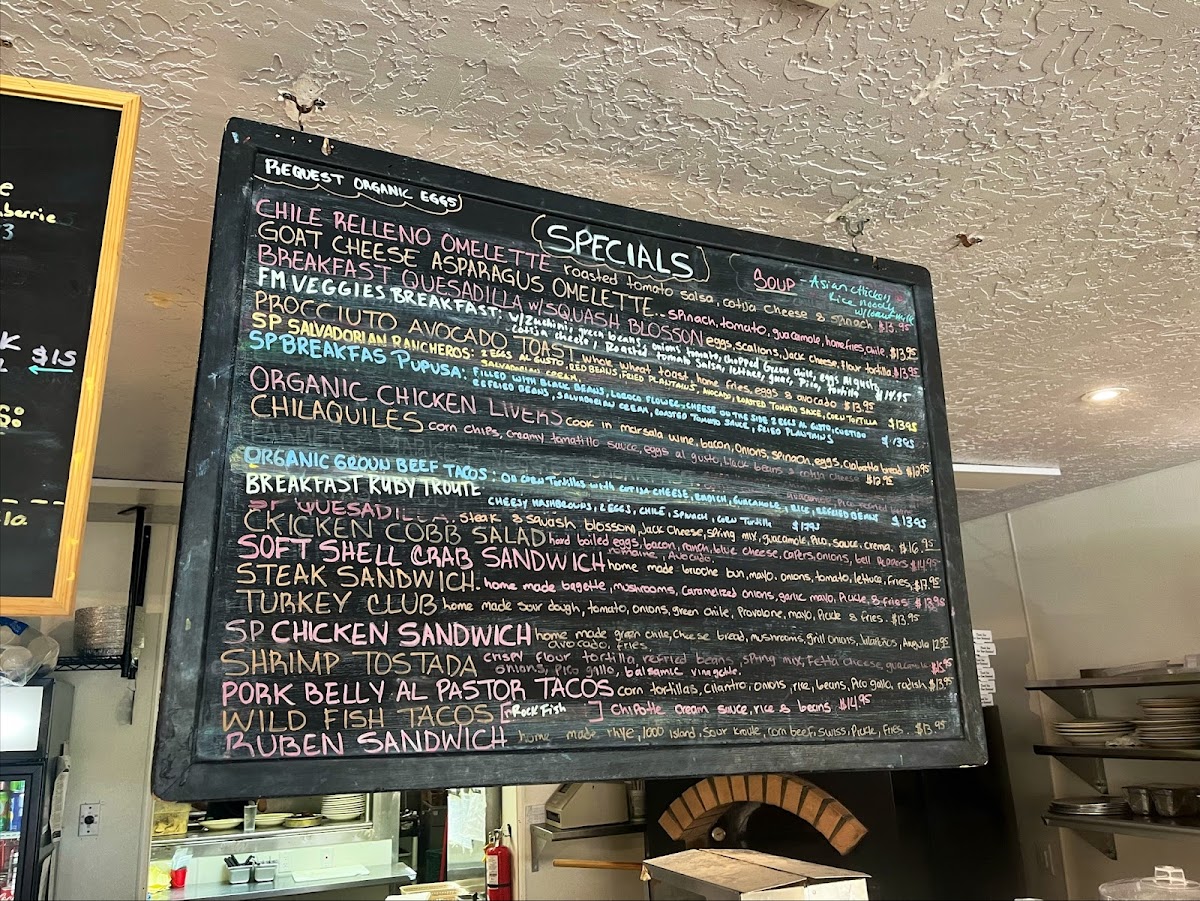 e
berrie
3
K
$15
REQUEST ORGANIC EGGS
SPECIALS
SOUP - Asian chicken
Rice noodle
w/coconut milk
CHILE RELLENO OMELETTE roasted tomato salsa, cotija cheese & spinach $13.95
GOAT CHEESE ASPARAGUS OMELETTE... spinach, tomato, guacamole, home fries, chile, $13.95
BREAKFAST QUESADILLA w/SQUASH BLOSSON eggs, scallions, Jack cheese, flour tortilla $13.95
FM VEGGIES BREAKFAST: w/Zuchini, green beans, onions, tomato, chopped Green chile, eggs Algusto,
cotija cheese, Roasted tomato salsa, lettuce, guac, Pico, tortilla $14.95
PROCCIUTO AVOCADO TOAST whole wheat toast, home fries, eggs & avocado $13.95
SP SALVADORIAN RANCHEROS: 2 EGGS AL GUSTO, RED BEANS, FRIED PLANTAINS, AVOCADO, ROASTED TOMATO SAUCE, CORN TORTILLA
SALVADORIAN CREAM $13.95
SP BREAKFAS PUPUSA: FILLED WITH BLACK BEANS, LOROCO FLOWER, CHEESE ON THE SIDE 2 EGGS AL GUSTO, CURTIDO
REFRIED BEANS, SALVADORIAN CREAM, ROASTED TOMATO SAUCE, FRIED PLANTAINS $13.95
ORGANIC CHICKEN LIVERS cook in marsala wine, bacon, Onions, spinach, eggs, Ciabatta bread $12.95
CHILAQUILES corn chips, creamy tomatillo sauce, eggs al gusto, black beans & cotija cheese $12.95
ORGANIC GROUN BEEF TACOS: ON CORN TORTILLAS WITH COTIJA CHEESE, RADICH, GUACAMOLE, RICE, REFRIED BEANS $13.95
BREAKFAST RUBY TROUTE CHEESY HASHBROWNS, 2 EGGS, CHILE, SPINACH, CORN Tortilla $17.95
SP QUESADILLA steak & squash blossom, Jack Cheese, spring mix, guacamole, Pico, sauce, crema. $16.95
CKICKEN COBB SALAD hard boiled eggs, bacon, ranch, blue cheese, capers, onions, bell Peppers $14.95
romaine, Avocado.
SOFT SHELL CRAB SANDWICH home made brioche bun, mayo, onions, tomato, lettuce, fries, $17.95
STEAK SANDWICH. home made bagette, mushrooms, Caramelized onions, garlic mayo, Pickle, & fries $13.95
TURKEY CLUB home made sour dough, tomato, onions, green chile, Provolone, mayo, Pickle & fries. $13.95
SP CHICKEN SANDWICH home made green chile, Cheese bread, mushrooms, grill onions, Jalapeños, Arugula 12.95
avocado, fries.
SHRIMP TOSTADA crispy flour tortilla, refried beans, spring mix, Fetta cheese, guacamole $15.95
onions, Pico gallo, balsamic vinagette.
PORK BELLY AL PASTOR TACOS corn tortillas, Cilantro, onions, rice, beans, Pico gallo, radish $13.95
WILD FISH TACOS [Rock Fish] Chipotle cream sauce, rice & beans $14.95
RUBEN SANDWICH home made rhye, 1000 island, sour kraute, corn beef, Swiss, Pickle, Fries. $13.95